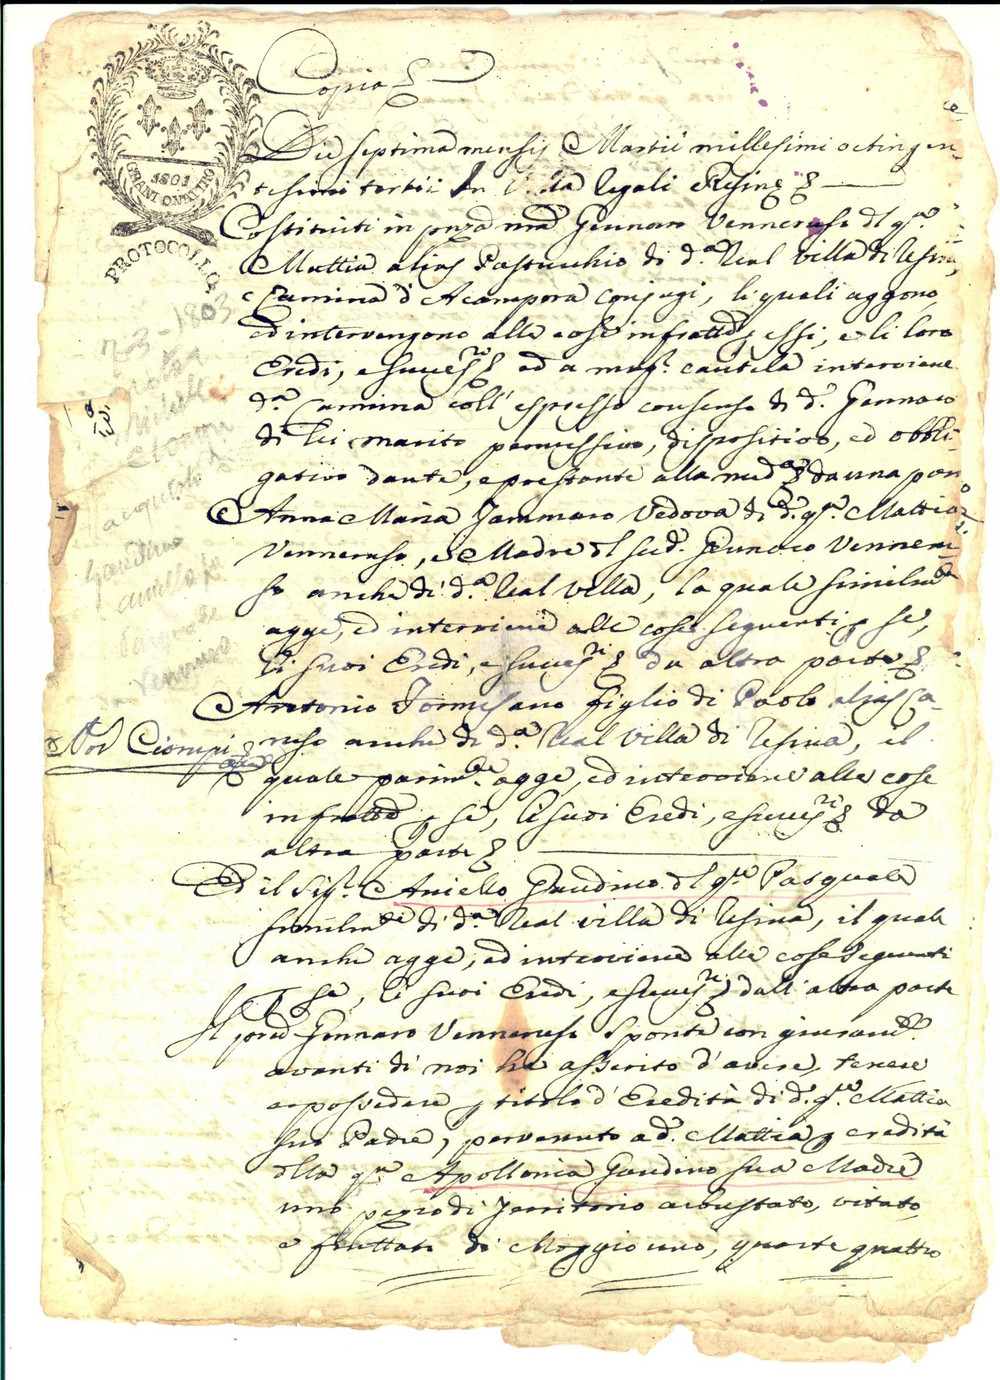 Copia
Die septima mensis Martii millesimi octingen-
tesimi tertii In Villa Regali Resine
Costituiti in pnza nra Gennaro Venneruso del qm
Mattia alias Pastucchio di da Real Villa di Resina,
e Camina d'Acampora conjugi, li quali aggono,
ed intervengono alle cose infratte p essi, e li loro
Eredi, e succri ed a magr cautela interviene
da Camina coll'espresso consenso di do Gennaro
di lei marito permissivo, dispositivo, ed obbli-
gativo dante, e prestante alla meda da una parte
Anna Maria Jammaro Vedova di do qm Mattia
Venneruso, e Madre del sudo Gennaro Venneru-
so anche di da Real Villa, la quale similmte
agge, ed interviene alle cose seguenti p se,
li suoi Eredi, e succri da altra parte
Antonio Formisano figlio di Paolo alias Ca-
ruso anche di da Real Villa di Resina, il
quale parimte agge, ed interviene alle cose
infratte p se, li suoi Eredi, e succri da
altra parte
Ed il Sigr Aniello Gaudino del qm Pasquale
similmte di da Real Villa di Resina, il quale
anche agge, ed interviene alle cose seguenti
p se, li suoi Eredi, e succri dall'altra parte
Il predo Gennaro Venneruso sponte con giuramto
avanti di noi ha asserito d'avere, tenere
e possedere p titolo d'Eredità di do qm Mattia
suo Padre, pervenuto a do Mattia p eredità
della qm Apollonia Gaudino sua Madre
uno pezzo di Territorio arbustato, vitato,
e fruttato di Moggio uno, quarte quattro
1801
GRANI QUATTRO
PROTOCOLLO.
7-3-1803
notar
Michele
acquisto di
Gaudino
aniello fu
Pasquale
da Venneruso
Nor Ciompi